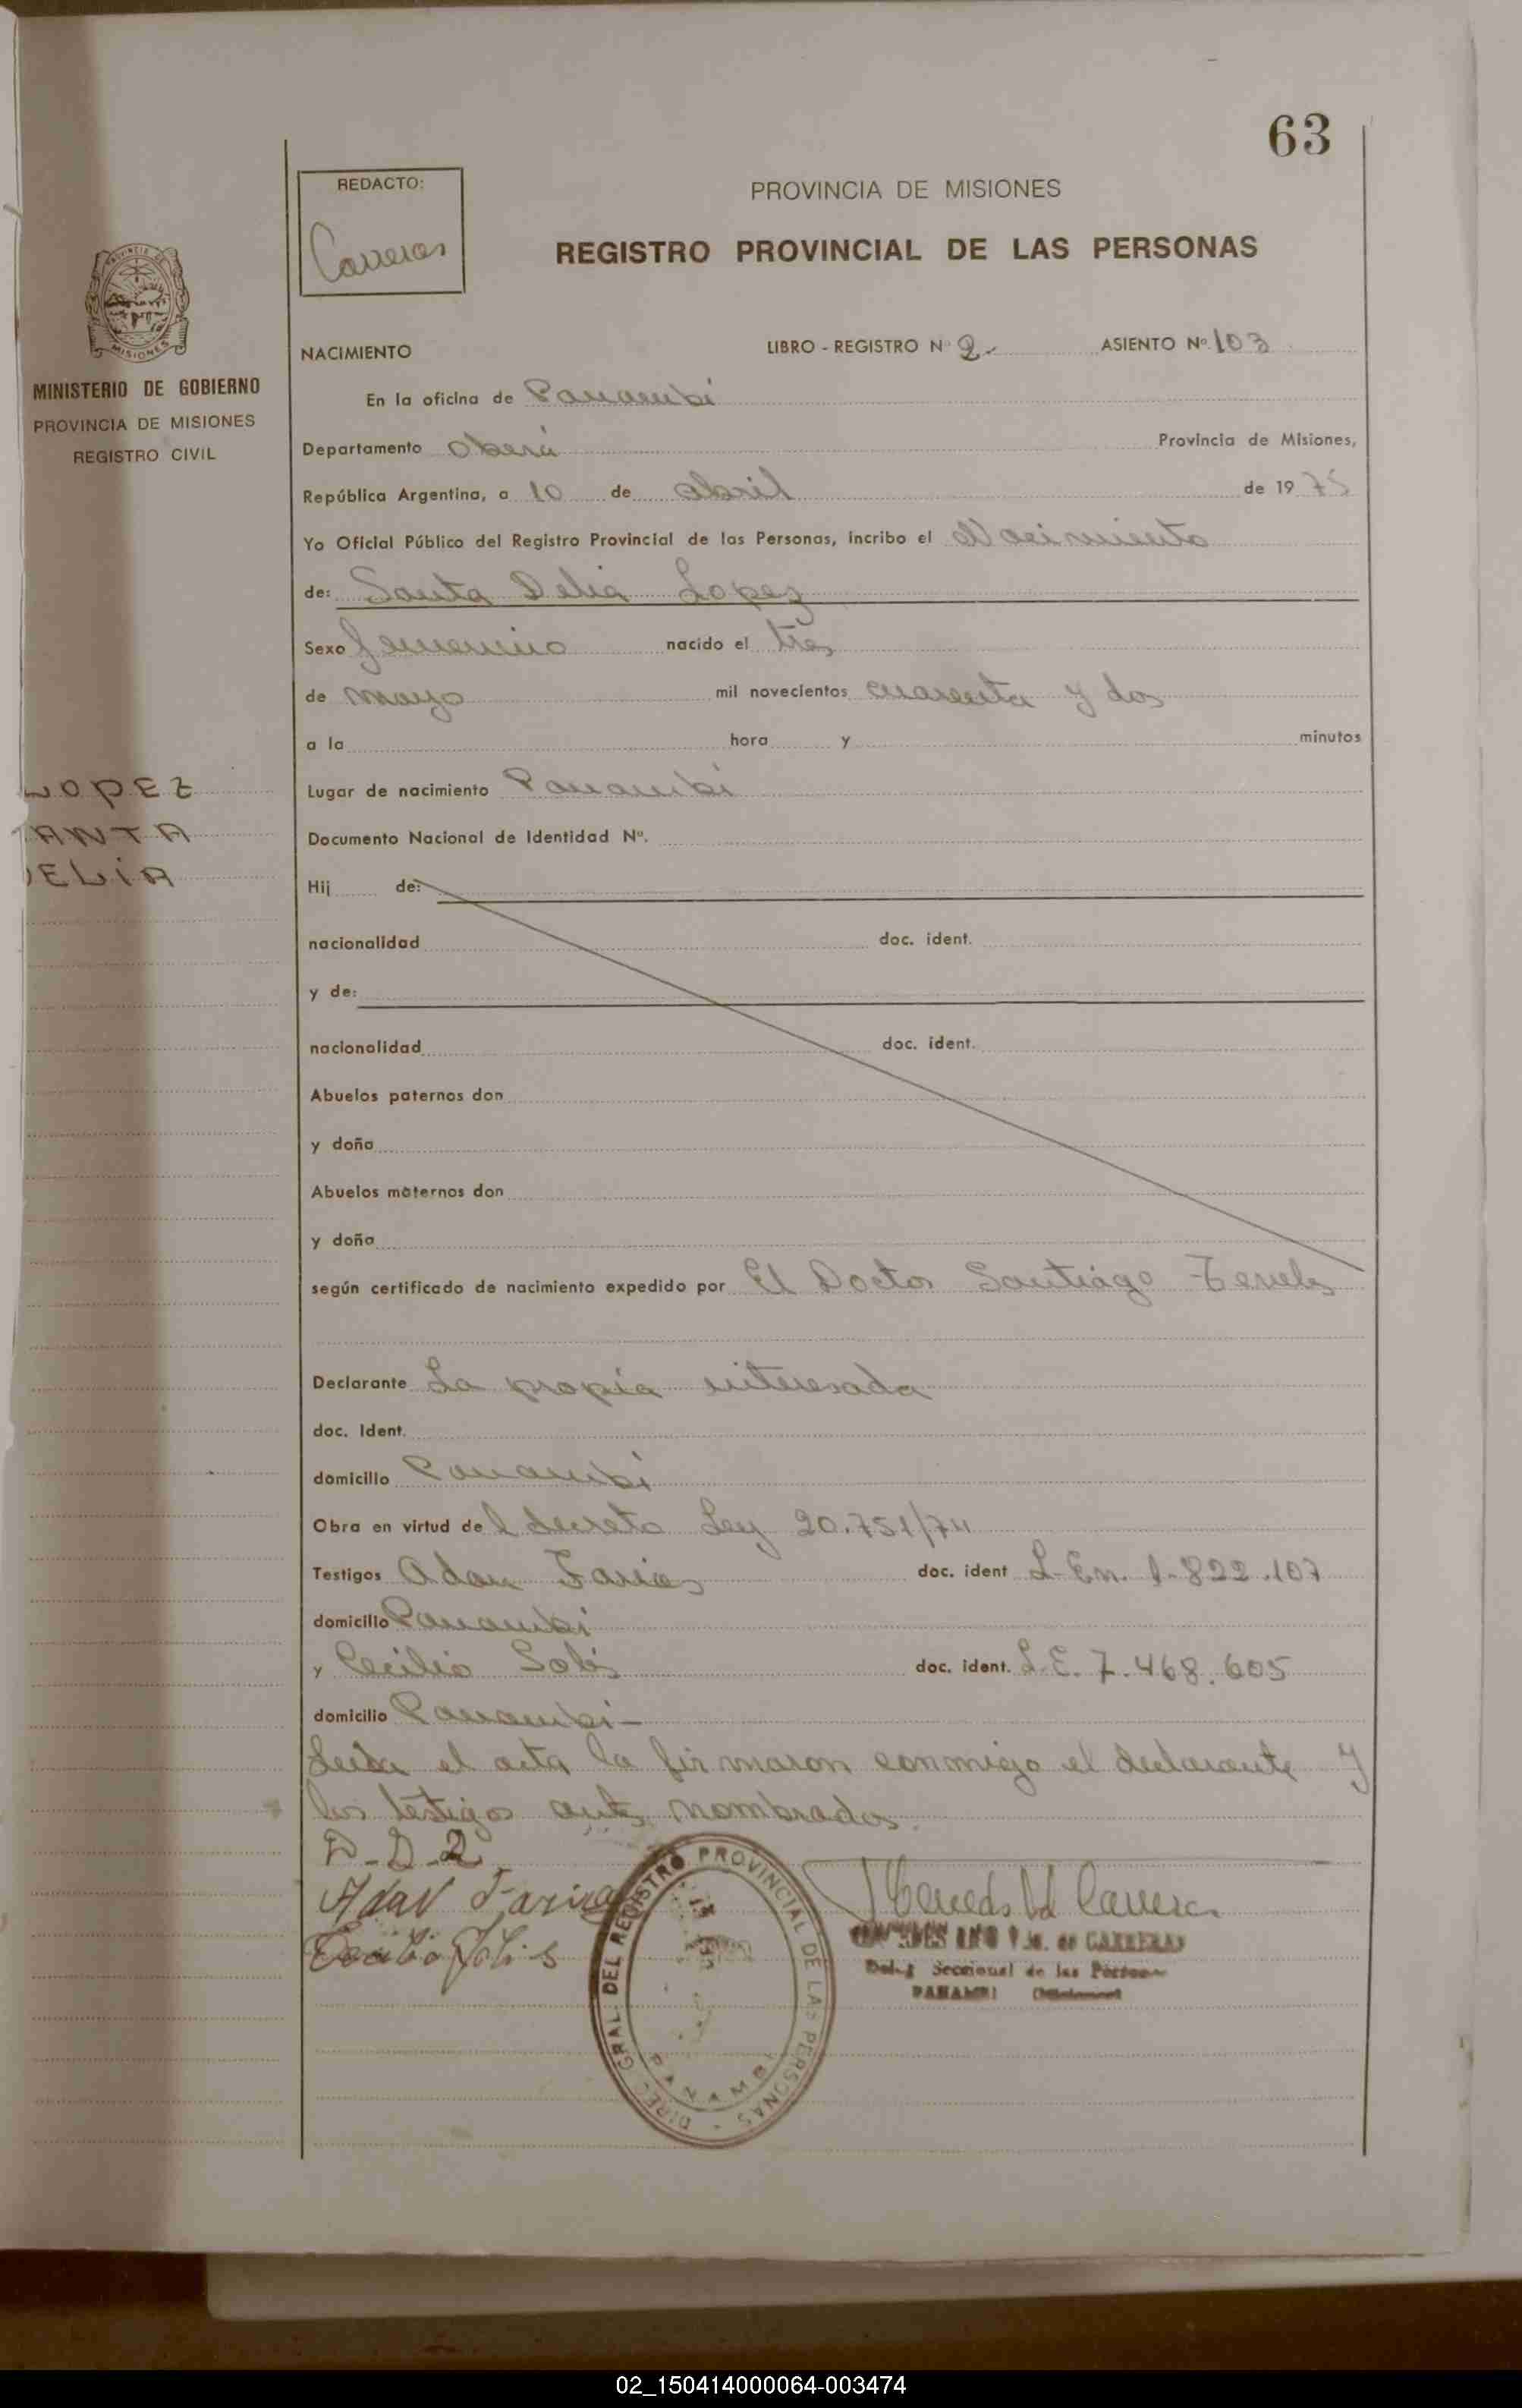 63
REDACTO:
Carreras
PROVINCIA DE MISIONES
REGISTRO PROVINCIAL DE LAS PERSONAS
MISIONES
MINISTERIO DE GOBIERNO
PROVINCIA DE MISIONES
REGISTRO CIVIL
LOPEZ
ANTA
DELIA
NACIMIENTO LIBRO - REGISTRO Nº 2 ASIENTO Nº 103
En la oficina de Panambi
Departamento Oberá Provincia de Misiones,
República Argentina, a 10 de abril de 1975
Yo Oficial Público del Registro Provincial de las Personas, incribo el Nacimiento
de: Santa Delia Lopez
Sexo femenino nacido el tres
de mayo mil novecientos cuarenta y dos
a la hora y minutos
Lugar de nacimiento Panambi
Documento Nacional de Identidad Nº.
Hij de:
nacionalidad doc. ident.
y de:
nacionalidad doc. ident.
Abuelos paternos don
y doña
Abuelos maternos don
y doña
según certificado de nacimiento expedido por El Doctor Santiago
Declarante La propia interesada
doc. Ident.
domicilio Panambi
Obra en virtud del decreto Ley 20.751/74
Testigos Adan Farias doc. ident L. En. 1.822.107
domicilio Panambi
y Cecilio Solis doc. ident. L.E. 7.468.605
domicilio Panambi-
Leida el acta la firmaron conmigo el declarante y
los testigos ante nombrados.
Adan Farias
Cecilio Solis
DIREC. GRAL. DEL REGISTRO PROVINCIAL DE LAS PERSONAS -
PANAMBI
de CARRERAS
Seccional de las Personas
PANAMBI (Misiones)
02_150414000064-003474